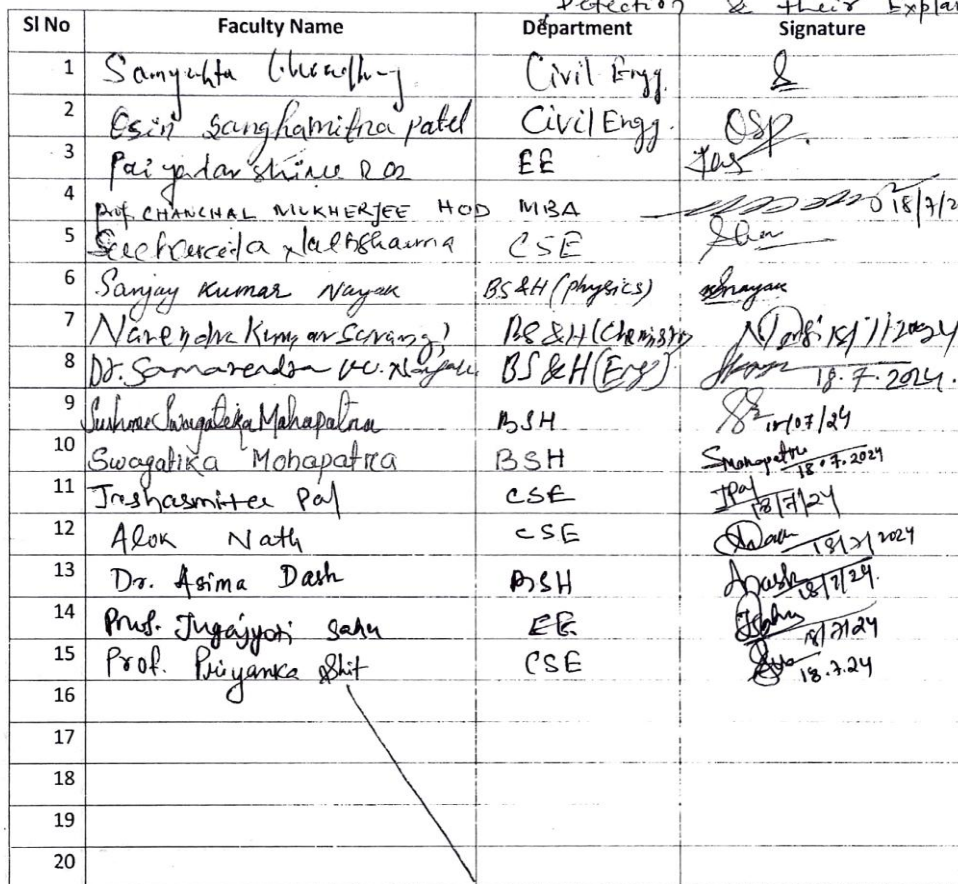 Detection & their Expla
Sl No Faculty Name Department Signature
1 Samyukta Civil Engg.
2 Esin Sanghamitra patel Civil Engg. OSP.
3 EE
4 Prof. CHANCHAL MUKHERJEE HOD MBA 18/7/2
5 CSE
6 Sanjay Kumar Nayak BS&H (physics) Snayak
7 Narendra Kumar Sarangi BS&H (Chemistry
8 Dr. Samarendra BS&H (Eng) 18.7.2024.
9 Mahapatra BSH /07/24
10 Swagatika Mohapatra BSH Smohapatra 18.07.2024
11 Pal CSE TPal 18/7/24
12 Alok Nath CSE 18/7/2024
13 Dr. Asima Dash BSH ADash 18/7/24.
14 Prof. Jugajyoti Sahu EE JSahu 18/7/24
15 Prof. Priyanka Shit CSE 18.7.24
16
17
18
19
20